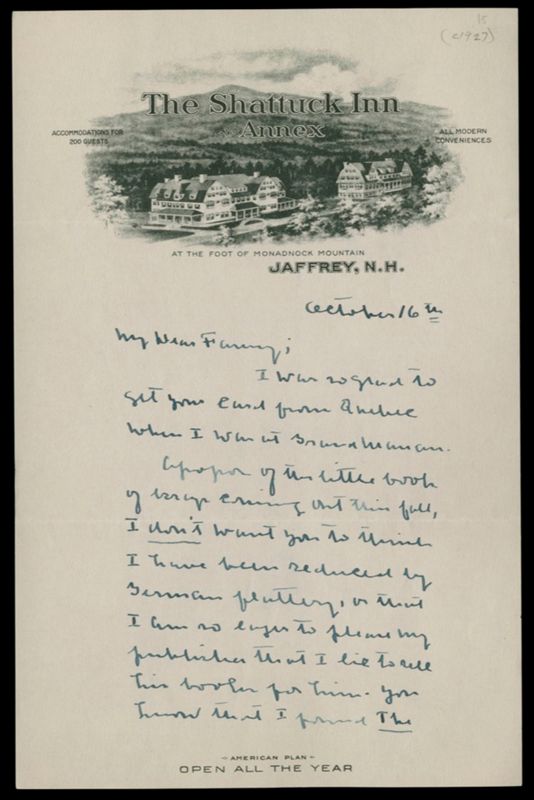 15
(c1927)
The Shattuck Inn
and Annex
ACCOMMODATIONS FOR
200 GUESTS
ALL MODERN
CONVENIENCES
AT THE FOOT OF MONADNOCK MOUNTAIN
JAFFREY, N.H.
October 16th
My Dear Fanny;
I was so glad to
get your card from Quebec
when I was at Grand Manan.
Apropos of the little book
of essays coming out this fall,
I don't want you to think
I have been seduced by
German flattery, or that
I am so eager to please my
publisher that I lie to sell
his books for him. You
know that I found The
- AMERICAN PLAN -
OPEN ALL THE YEAR